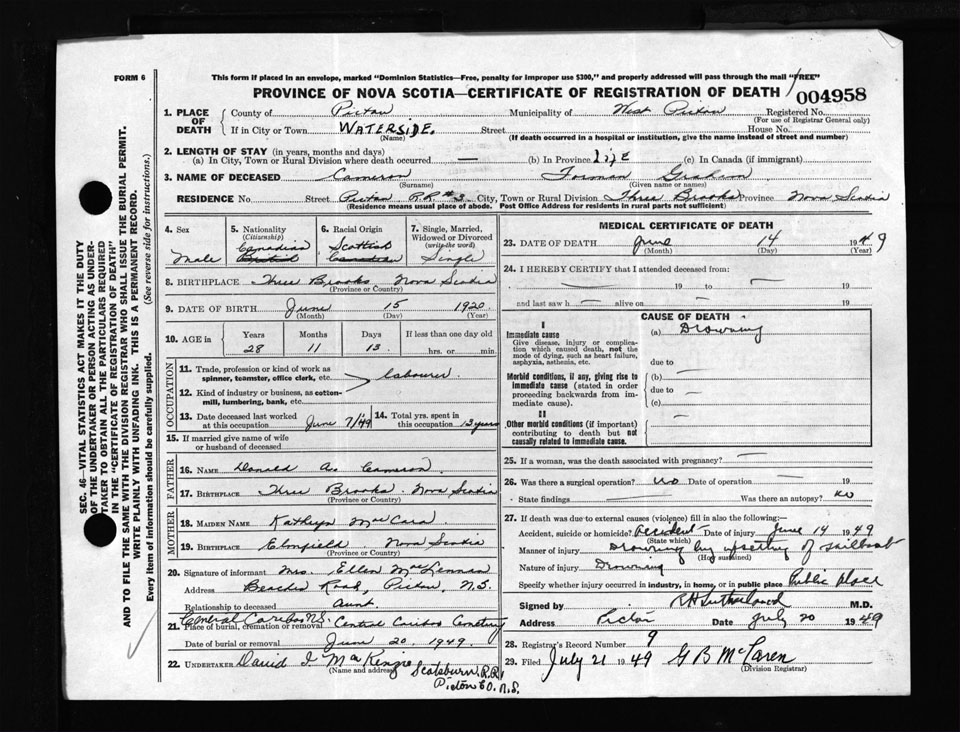 FORM 6
This form if placed in an envelope, marked "Dominion Statistics—Free, penalty for improper use $300," and properly addressed will pass through the mail "FREE"
PROVINCE OF NOVA SCOTIA—CERTIFICATE OF REGISTRATION OF DEATH 004958
1. PLACE OF DEATH County of Pictou Municipality of West Pictou Registered No.
(For use of Registrar General only)
If in City or Town WATERSIDE. Street House No.
(Name) (If death occurred in a hospital or institution, give the name instead of street and number)
2. LENGTH OF STAY (in years, months and days)
(a) In City, Town or Rural Division where death occurred — (b) In Province life (c) In Canada (if immigrant)
3. NAME OF DECEASED Cameron Forman Graham
(Surname) (Given name or names)
RESIDENCE No. Street Pictou R.R.#3 City, Town or Rural Division Three Brooks Province Nova Scotia
(Residence means usual place of abode. Post Office Address for residents in rural parts not sufficient)
4. Sex 5. Nationality (Citizenship) 6. Racial Origin 7. Single, Married, Widowed or Divorced (write the word)
Canadian Scottish
Male British Canadian Single
8. BIRTHPLACE Three Brooks Nova Scotia
(Province or Country)
9. DATE OF BIRTH June 15 1920
(Month) (Day) (Year)
10. AGE in Years Months Days If less than one day old
28 11 13 hrs. or min.
OCCUPATION
11. Trade, profession or kind of work as spinner, teamster, office clerk, etc. labourer
12. Kind of industry or business, as cotton-mill, lumbering, bank, etc.
13. Date deceased last worked at this occupation June 7/49 14. Total yrs. spent in this occupation 13 years
15. If married give name of wife or husband of deceased
FATHER
16. NAME Donald A. Cameron
17. BIRTHPLACE Three Brooks Nova Scotia
(Province or Country)
MOTHER
18. MAIDEN NAME Kathryn MacCara
19. BIRTHPLACE Elmfield Nova Scotia
(Province or Country)
20. Signature of informant Mrs. Ellen MacLennan
Address Beaches Road, Pictou, N.S.
Relationship to deceased Aunt
21. Place of burial, cremation or removal Central Caribou N.S. Central Caribou Cemetery
Date of burial or removal June 20 1949
22. UNDERTAKER David I MacKenzie
(Name and address) Scotsburn, R.R.1
Pictou Co. N.S.
MEDICAL CERTIFICATE OF DEATH
23. DATE OF DEATH June 14 1949
(Month) (Day) (Year)
24. I HEREBY CERTIFY that I attended deceased from:
— 19 to — 19
and last saw h — alive on — 19
CAUSE OF DEATH
I
Immediate cause (a) Drowning
Give disease, injury or complication which caused death, not the mode of dying, such as heart failure, asphyxia, asthenia, etc.
due to
Morbid conditions, if any, giving rise to immediate cause (stated in order proceeding backwards from immediate cause).
(b) —
due to —
(c)
II
Other morbid conditions (if important) contributing to death but not causally related to immediate cause.
—
25. If a woman, was the death associated with pregnancy? —
26. Was there a surgical operation? no Date of operation —
State findings — Was there an autopsy? no
27. If death was due to external causes (violence) fill in also the following:—
Accident, suicide or homicide? Accident Date of injury June 14 1949
(State which)
Manner of injury Drowning by upsetting of sailboat
(How sustained)
Nature of injury Drowning
Specify whether injury occurred in industry, in home, or in public place Public place
Signed by R H Sutherland M.D.
Address Pictou Date July 20 1949
28. Registrar's Record Number 9
29. Filed July 21 1949 G B McLaren
(Division Registrar)
SEC. 46—VITAL STATISTICS ACT MAKES IT THE DUTY
OF THE UNDERTAKER OR PERSON ACTING AS UNDER-
TAKER TO OBTAIN ALL THE PARTICULARS REQUIRED
IN THE "CERTIFICATE OF REGISTRATION OF DEATH"
AND TO FILE THE SAME WITH THE DIVISION REGISTRAR WHO SHALL ISSUE THE BURIAL PERMIT.
WRITE PLAINLY WITH UNFADING INK. THIS IS A PERMANENT RECORD.
Every item of information should be carefully supplied. (See reverse side for instructions.)